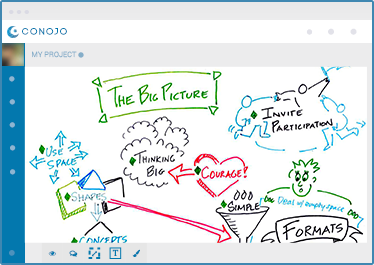 CONOJO
MY PROJECT
THE BIG PICTURE
INVITE
PARTICIPATION
USE
SPACE
THINKING
BIG
COURAGE!
SHAPES
SIMPLE
Deal w/ empty space
FORMATS
CONCEPTS
T